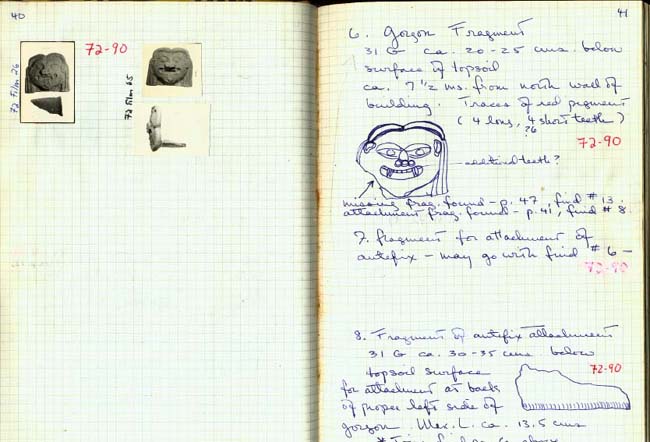 40
72-90
72 Film 26
72 Film 65
41
6. Gorgon Fragment
31 G ca. 20-25 cms. below
surface of topsoil
ca. 7 1/2 ms. from north wall of
building. Traces of red pigment
(4 long, 4 short teeth)
?6
72-90
additional teeth?
missing frag. found - p. 47, find #13.
attachment frag. found - p. 41, find #8.
7. fragment for attachment of
antefix - may go with find #6 -
72-90
8. Fragment of antefix attachment
31 G ca. 30-35 cms below
topsoil surface
72-90
for attachment at back
of proper left side of
gorgon. Max. L. ca. 13.5 cms